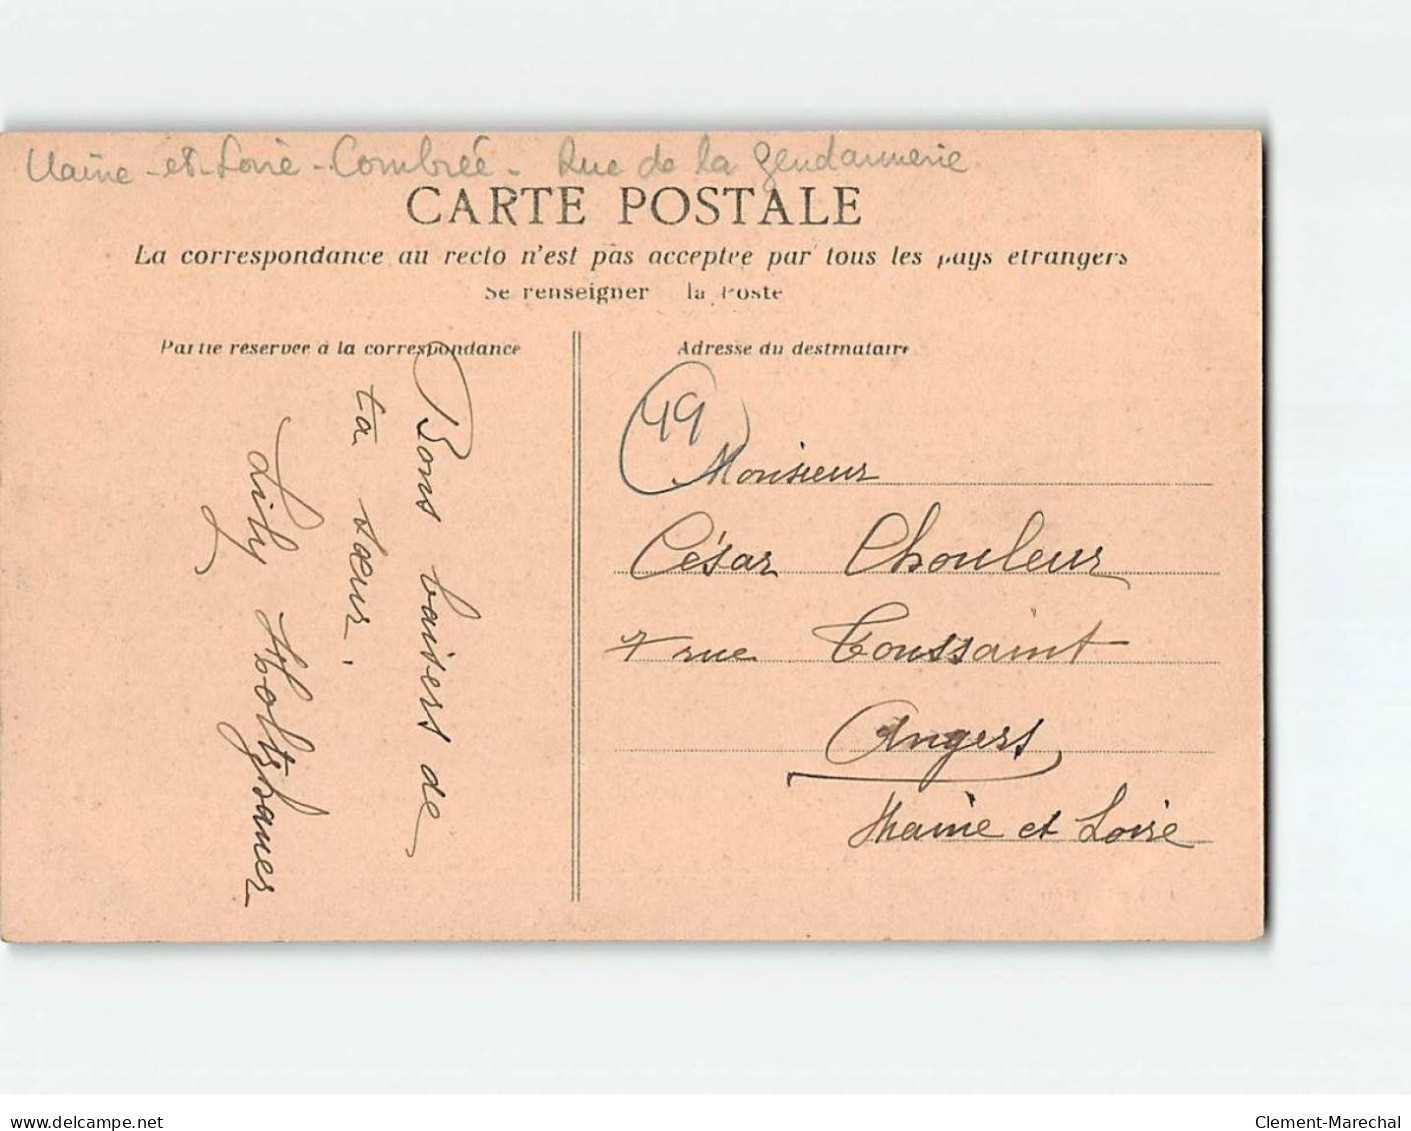 Maine-et-Loire - Combrée - Rue de la gendarmerie
CARTE POSTALE
La correspondance au recto n'est pas acceptee par tous les pays etrangers
Se renseigner la Poste
Partie reservee a la correspondance
Bons baisers de
ta sœur.
Lily Holtzhauer
Adresse du destinataire
49
Monsieur
César Chouleur
7 rue Toussaint
Angers
Maine et Loire
www.delcampe.net
Clement-Marechal